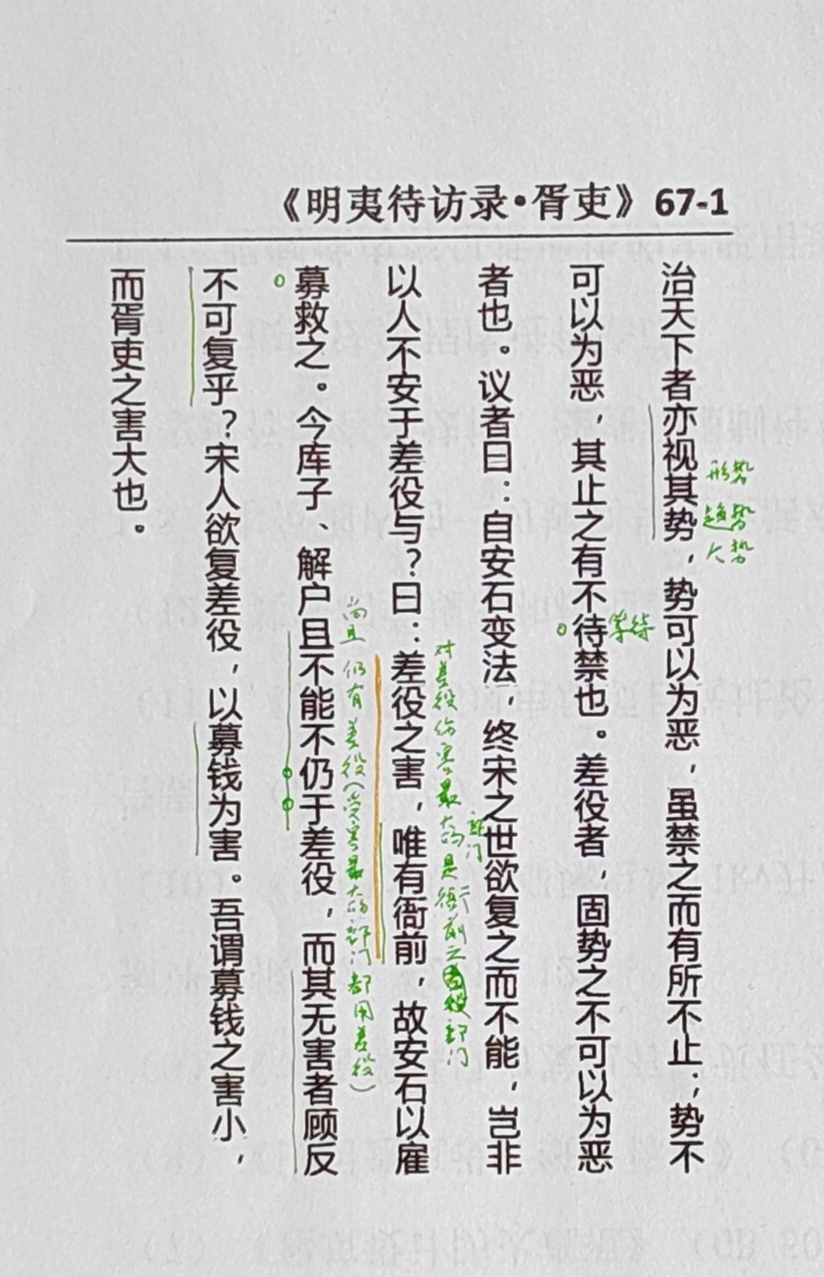 《明夷待访录•胥吏》67-1
治天下者亦视其势，势可以为恶，虽禁之而有所不止；势不
形势
趋势
人势
可以为恶，其止之有不待禁也。差役者，固势之不可以为恶
等待
者也。议者曰：自安石变法，终宋之世欲复之而不能，岂非
以人不安于差役与？曰：差役之害，唯有衙前，故安石以雇
对差役伤害最大的是衙前之部门
部门
募救之。今库子、解户且不能不仍于差役，而其无害者顾反
尚且 仍有差役（受害最大的部门都用差役）
不可复乎？宋人欲复差役，以募钱为害。吾谓募钱之害小，
而胥吏之害大也。